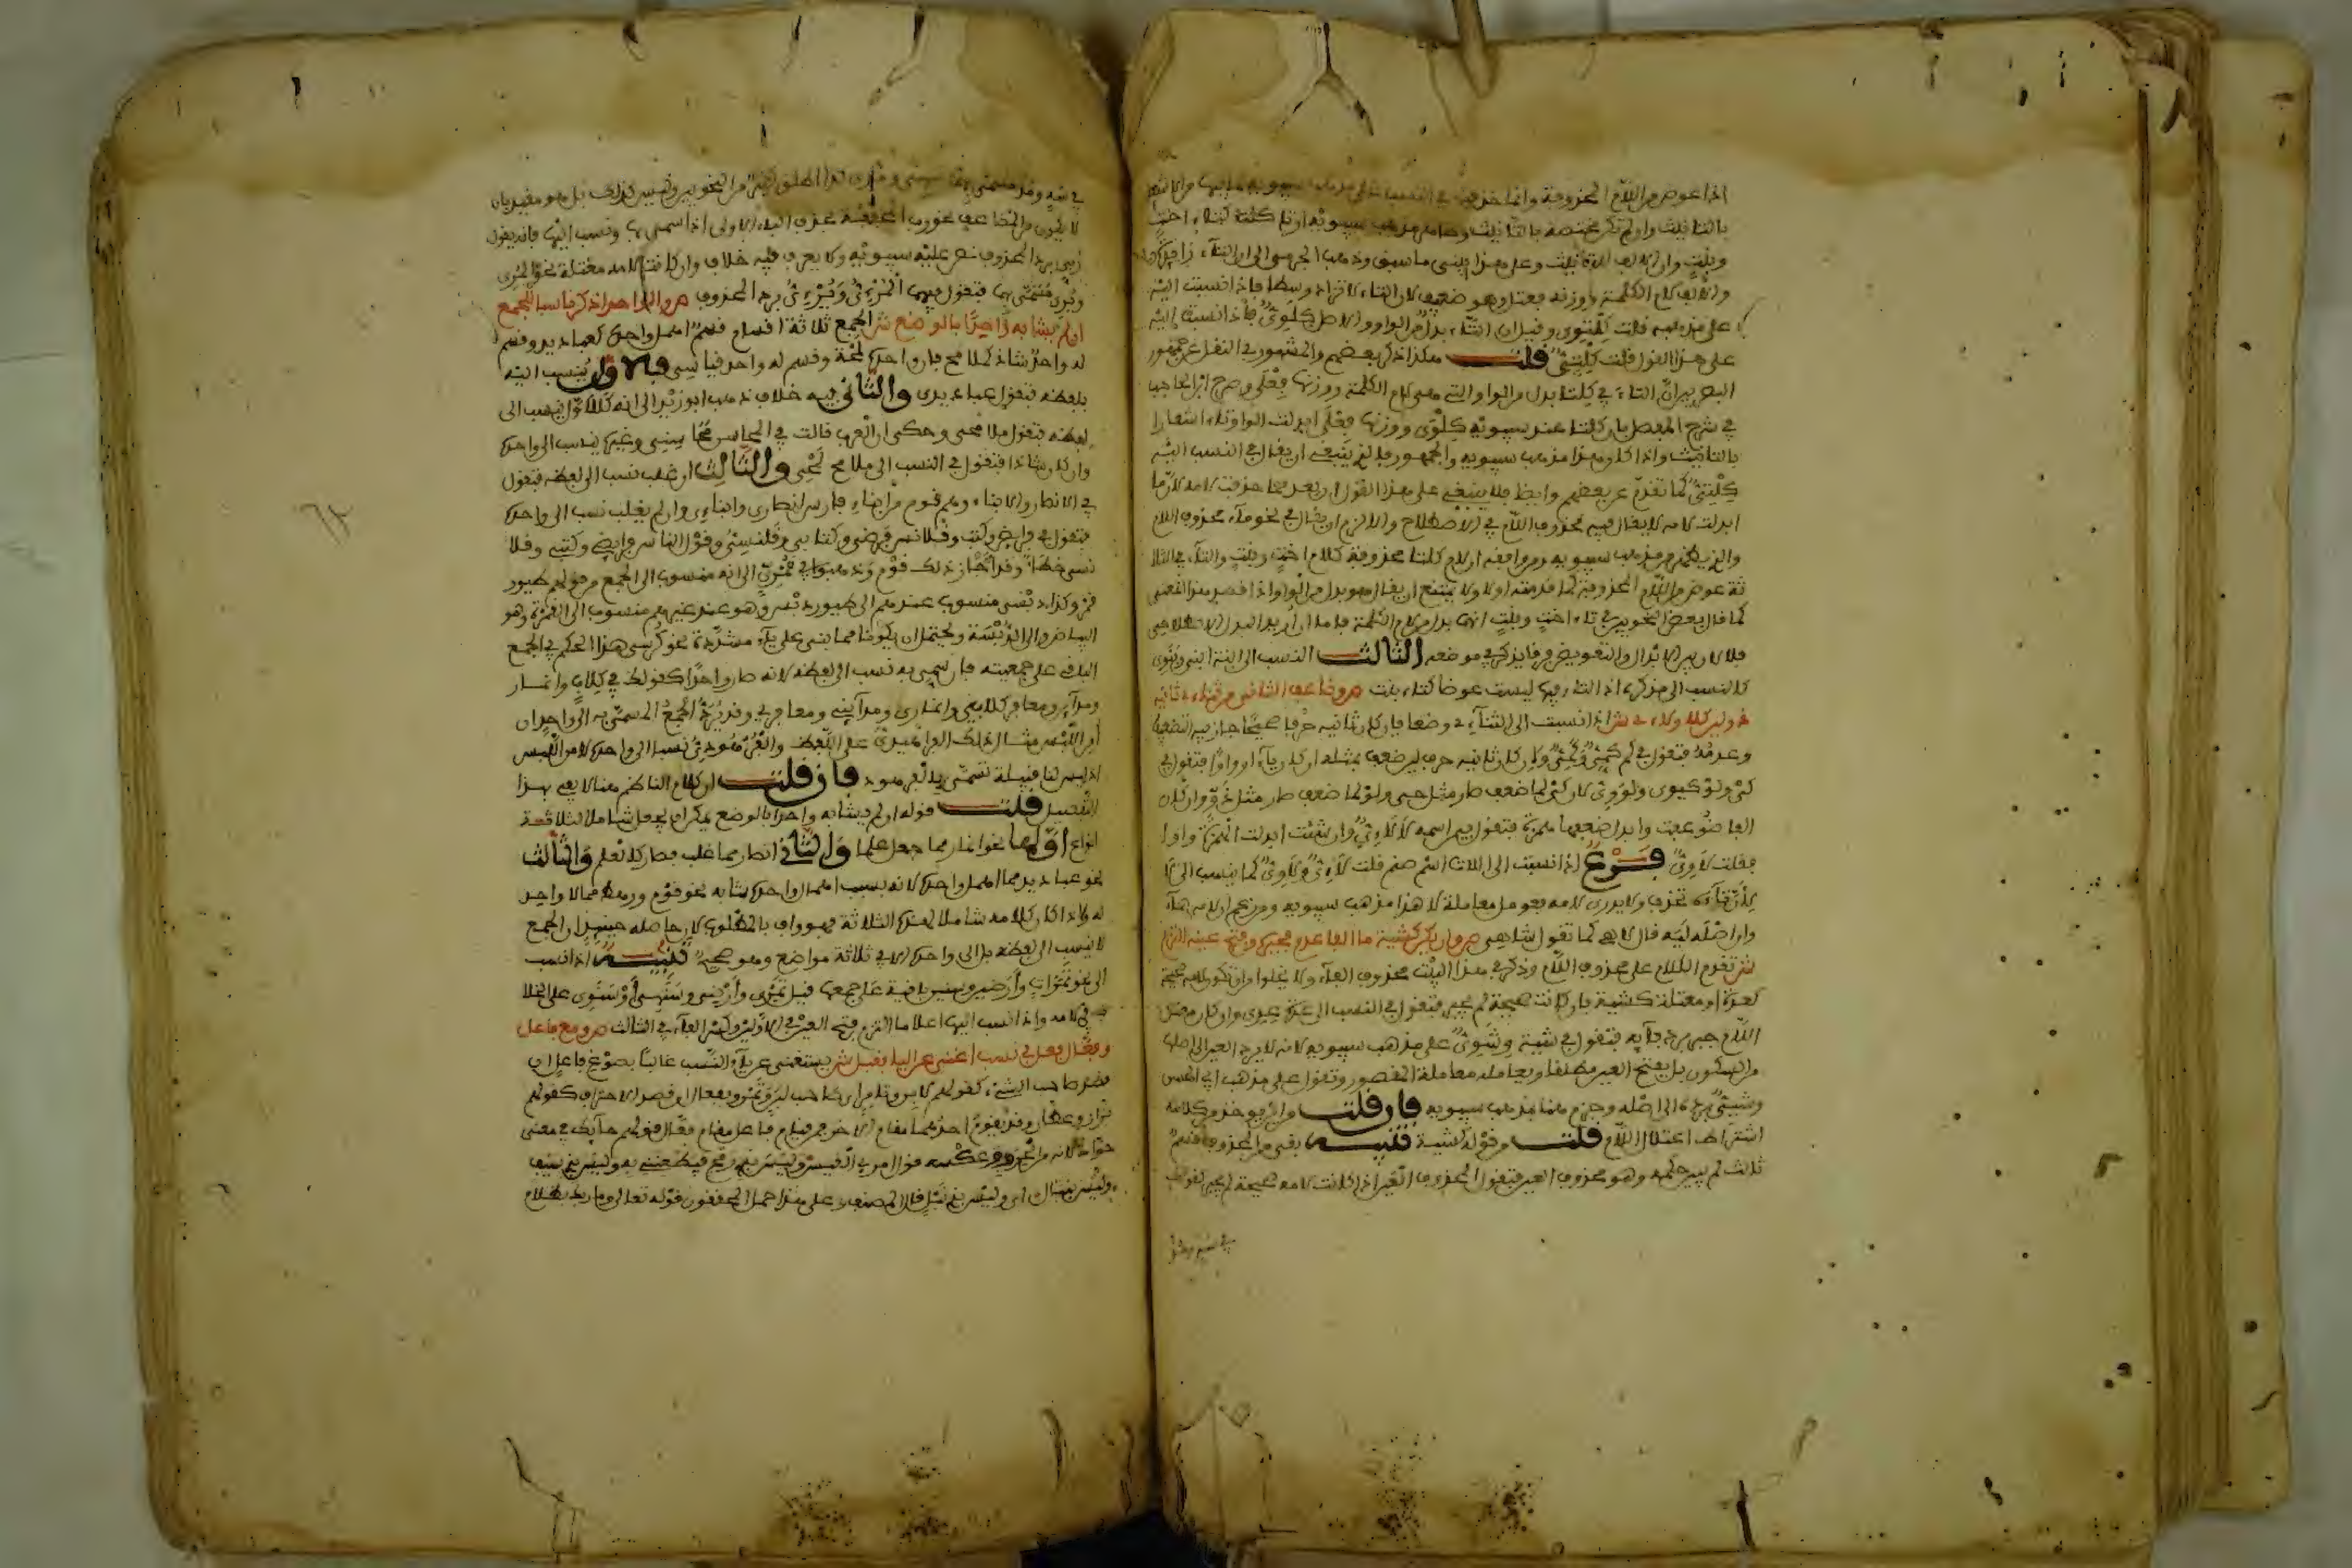 اذا عوض من اللام المحذوفة وانما حذفت في النسب على مذهب سيبويه
بالتانيث وان لم تكن مختصة بالتانيث مذهب سيبويه ان تا كلتا كتاء اخت
وبنت وان الالف للتانيث وعلى هذا ينبني ما سبق وذهب الجرمي الى ان التاء زائدة
والالف لام الكلمة ووزنه فعتل وهو ضعيف لان التاء لا تزاد وسطا فاذا نسبت اليه
على مذهبه قلت كلتوي وقيل ان التاء بدل من الواو والاصل كلوى فاذا نسبت اليه
على هذا القول قلت كلتي قلت هكذا ذكر بعضهم والمشهور في النقل عن جمهور
البصريين ان التاء في كلتا بدل من الواو التي هي لام الكلمة ووزنها فعلى وصرح ابن الحاجب
في شرح المفصل بان كلتا عند سيبويه كلوى ووزنها فعلى ابدلت الواو تاء اشعارا
بالتانيث واذا كان هذا مذهب سيبويه والجمهور فالذي ينبغي ان يقال في النسب اليه
كلتي كما تقدم عن بعضهم وايضا فلا ينبغي على هذا القول ان يعد مما حذفت لامه لان ما
ابدلت لامه لا يقال فيه محذوف اللام في الاصطلاح والا لزم ان يقال في نحو ماء محذوف اللام
والذي يظهر من مذهب سيبويه ومن وافقه ان لام كلتا محذوفة كلام اخت وبنت والتاء في الثلا
ثة عوض من اللام المحذوفة كما قدمته اولا ولا يمتنع ان يقال هو بدل من الواو اذا قصد هذا المعنى
كما قال بعض النحويين في تاء اخت وبنت انها بدل من لام الكلمة فاما ان اريد البدل الاصطلاحي
فلا لان بين الابدال والتعويض فرقا يذكر في موضعه الثالث النسب الى ابنة ابني وبنوي
كالنسب الى مذكره اذ التاء فيها ليست عوضا كتاء بنت ص وضاعف الثاني من ثنائي ثانيه
ذو لين كلا ولائي ش اذا نسبت الى الثنائي وضعا فان كان ثانيه حرفا صحيحا جاز فيه التضعيف
وعدمه فتقول في كم كمي وكمي وان كان ثانيه حرف لين ضعف بمثله ان كان ياء او واوا فتقول في
كي ولو كيوي ولووي لان كي لما ضعف صار مثل حي ولو لما ضعف صار مثل دو وان كان
الفا ضوعفت وابدل ضعفها همزة فتقول فيمن اسمه لا لائي وان شئت ابدلت الهمزة واوا
فقلت لاوي فرع اذا نسبت الى اللات اسم صنم قلت لائي ولاوي كما ينسب الى لا
لان تاءه تحذف ولا يدرى لامه فعومل معاملة لا هذا مذهب سيبويه ومن زعم ان لامه هاء
وان اصله ليه قال لاهي كما تقول شاهي ص وان يكن كشية ما الفا عدم فجبره وفتح عينه التزم
ش تقدم الكلام على محذوف اللام وذكر في هذا البيت محذوف الفاء ولا يخلو اما ان تكون لامه صحيحة
كعدة او معتلة كشية فان كانت صحيحة لم يجبر فتقول في النسب الى عدة عدي وان كان معتل
اللام جبر برد فائه فتقول في شية وشوي على مذهب سيبويه لانه لا يرد العين الى اصلها
من السكون بل يفتح العين مطلقا ويعامله معاملة المقصور وتقول على مذهب ابي الحسن
وشيي برده الى اصله وجزم هنا بمذهب سيبويه فان قلت من اين يوخذ من كلامه
اشتراط اعتلال اللام قلت من قوله كشية تنبيه بقي من المحذوف قسم
ثالث لم يبين حكمه وهو محذوف العين فتقول المحذوف العين اذا كانت لامه صحيحة لم يجبر كقولك
في سه ومذ
في سه ومذ مسمى بهما سهي ومذي كذا اطلق كثير من النحويين وليس كذلك بل هو مقيد بان
لا يكون من المضاعف نحو رب المخففة بحذف الباء الاولى اذا سمي بها ونسب اليها فانه يقول
ربي برد المحذوف نص عليه سيبويه ولا يعرف فيه خلاف وان كانت لامه معتلة نحو المرى
ويرى مسمى بها فتقول فيهما المرئي واليرئي برد المحذوف ص والواحد اذكر ناسبا للجمع
ان لم يشابه واحدا بالوضع ش الجمع ثلاثة اقسام قسم اهمل واحده كعباديد وقسم
له واحد شاذ كملامح فان واحده لمحة وقسم له واحد قياسي فالاول ينسب اليه
بلفظه فتقول عباديدي والثاني فيه خلاف ذهب ابو زيد الى انه كالاول ينسب الى
لفظه فتقول ملامحي وحكى ان العرب قالت في المحاسن محاسني وغيره ينسب الى واحده
وان كان شاذا فتقول في النسب الى ملامح لمحي والثالث ان غلب نسب الى لفظه فتقول
في الانصار والابناء وهم قوم من ابناء فارس انصاري وابناوي وان لم يغلب نسب الى واحده
فتقول في فرائض وكتب وقلانس فرضي وكتابي وقلنسي وقول الناس فرائضي وكتبي وقلا
نسي خطا وقد اجاز ذلك قوم وذهبوا في قمري الى انه منسوب الى الجمع من قولهم طيور
قمر وكذا دبسي منسوب عندهم الى طيور دبس وهو عند غيرهم منسوب الى القمرة وهو
البياض والى الدبسة ويحتمل ان يكونا مما بني على ياء مشددة نحو كرسي هذا الحكم في الجمع
الباقي على جمعيته فان سمي به نسب الى لفظه لانه صار واحدا كقولك في كلاب وانمار
ومدائن ومعافر كلابي وانماري ومدائني ومعافري وقد يرد الجمع المسمى به الى واحد ان
امن اللبس مثال ذلك الفراهيدي على اللفظ والفرهودي نسبا الى واحده لامن اللبس
اذ ليس لنا قبيلة تسمى بالفرهود فان قلت ان كلام الناظم هنا لا يفي بهذا
التفصيل قلت قوله ان لم يشابه واحدا بالوضع يمكن ان يجعل شاملا لثلاثة
انواع اولها نحو انمار مما جعل علما والثاني انصار مما غلب فصار كالعلم والثالث
نحو عباديد مما اهمل واحده لانه بسبب اهمال واحده شابه نحو قوم ورهط مما لا واحد
له فاذا كان كلامه شاملا لهذه الثلاثة فهو واف بالمطلوب لان حاصله حينئذ ان الجمع
لا ينسب الى لفظه بل الى واحده الا في ثلاثة مواضع وهو صحيح تنبيه اذا نسب
الى نحو تمرات وارضين وسنين باقية على جمعها قيل تمري وارضي وسنهي او سنوي على الخلا
ف في لامه واذا نسب اليها اعلاما التزم فتح العين في الاولين وكسر الفاء في الثالث ص ومع فاعل
وفعال فعل في نسب اغنى عن اليا فقبل ش يستغنى عن ياء النسب غالبا بصوغ فاعل ان
قصد صاحب الشيء كقولهم لابن وتامر اي صاحب لبن وتمر وبفعال ان قصد الاحتراف كقولهم
بزاز وعطار وقد يقوم احدهما مقام الاخر فمن قيام فاعل مقام فعال قولهم حائك في معنى
حواك لانه من الحرف وعكسه قول امرئ القيس وليس بذي رمح فيطعنني به وليس بذي سيف
وليس بنبال اي وليس بذي نبل قال المصنف وعلى هذا حمل المحققون قوله تعالى وما ربك بظلام